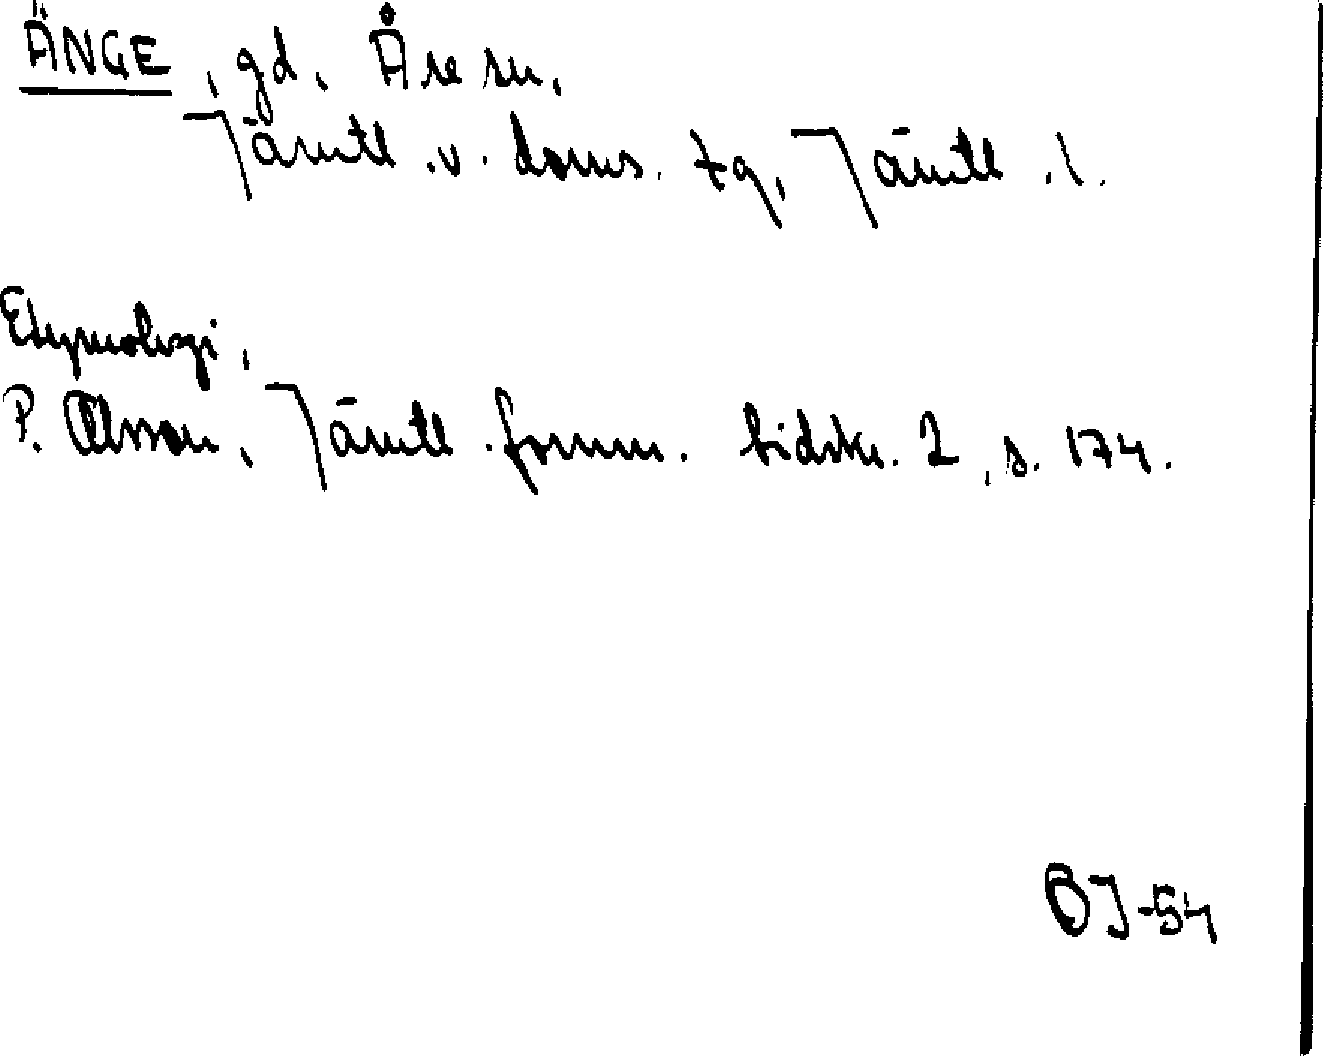 ÄNGE, gd, Åre sn,
Jämtl. v. doms. tg, Jämtl. l.
Etymologi,
P. Olsson, Jämtl. fornm. tidskr. 2, s. 174.
BJ-54